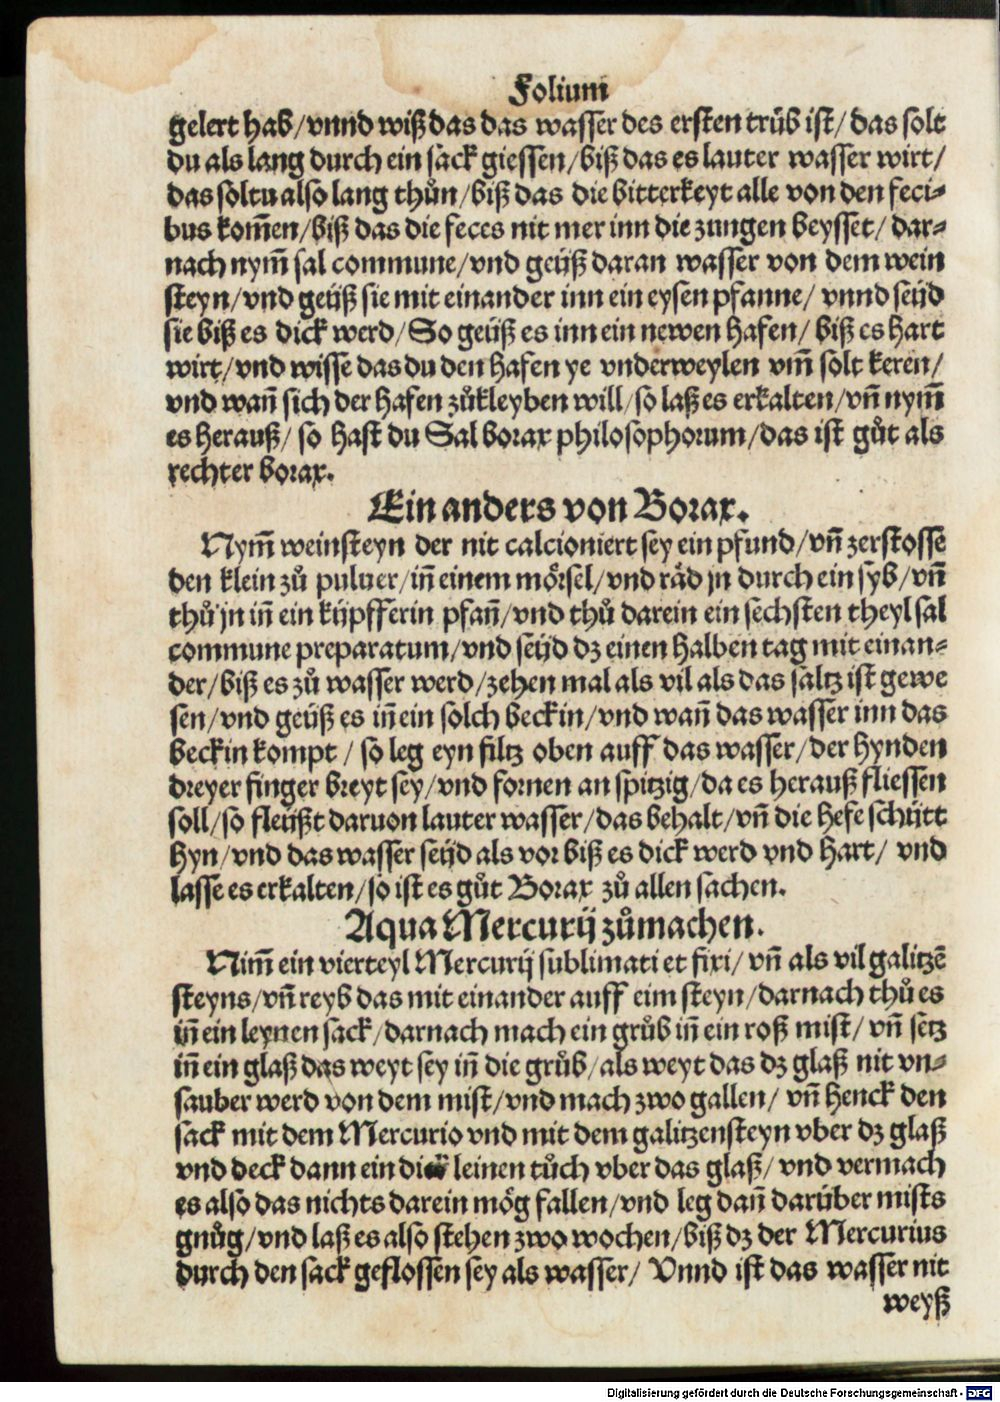 Folium
gelert hab/vnnd wiß das das wasser des ersten trüb ist/das solt
du als lang durch ein sack giessen/biß das es lauter wasser wirt/
das soltu also lang thůn/biß das die bitterkeyt alle von den feci-
bus kom̃en/biß das die feces nit mer inn die zungen beysset/dar-
nach nym̃ sal commune/vnd geüß daran wasser von dem wein
steyn/vnd geüß sie mit einander inn ein eysen pfanne/vnnd seüd
sie biß es dick werd/So geüß es inn ein newen hafen/biß es hart
wirt/vnd wisse das du den hafen ye vnderweylen vm̃ solt keren/
vnd wañ sich der hafen zůkleyben will/so laß es erkalten/vñ nym̃
es herauß/so hast du Sal borax philosophorum/das ist gůt als
rechter borax.
Ein anders von Borax.
Nym̃ weinsteyn der nit calcioniert sey ein pfund/vñ zerstosse
den klein zů puluer/iñ einem mörsel/vnd räd jn durch ein syb/vñ
thů jn iñ ein küpfferin pfañ/vnd thů darein ein sechsten theyl sal
commune preparatum/vnd seüd dz einen halben tag mit einan-
der/biß es zů wasser werd/zehen mal als vil als das saltz ist gewe
sen/vnd geüß es iñ ein solch beckin/vnd wañ das wasser inn das
beckin kompt/so leg eyn filtz oben auff das wasser/der hynden
dreyer finger breyt sey/vnd fornen an spitzig/da es herauß fliessen
soll/so fleüßt daruon lauter wasser/das behalt/vñ die hefe schütt
hyn/vnd das wasser seüd als vor biß es dick werd vnd hart/vnd
lasse es erkalten/so ist es gůt Borax zů allen sachen.
Aqua Mercurij zůmachen.
Nim̃ ein vierteyl Mercurij sublimati et fixi/vñ als vil galitzē
steyns/vñ reyb das mit einander auff eim steyn/darnach thů es
iñ ein leynen sack/darnach mach ein grůb iñ ein roß mist/vñ setz
iñ ein glaß das weyt sey iñ die grůb/als weyt das dz glaß nit vn-
sauber werd von dem mist/vnd mach zwo gallen/vñ henck den
sack mit dem Mercurio vnd mit dem galitzensteyn vber dz glaß
vnd deck dann ein leinen tůch vber das glaß/vnd vermach
es also das nichts darein mög fallen/vnd leg dañ darüber mists
gnůg/vnd laß es also stehen zwo wochen/biß dz der Mercurius
durch den sack geflossen sey als wasser/Vnnd ist das wasser nit
weyß
Digitalisierung gefördert durch die Deutsche Forschungsgemeinschaft - DFG